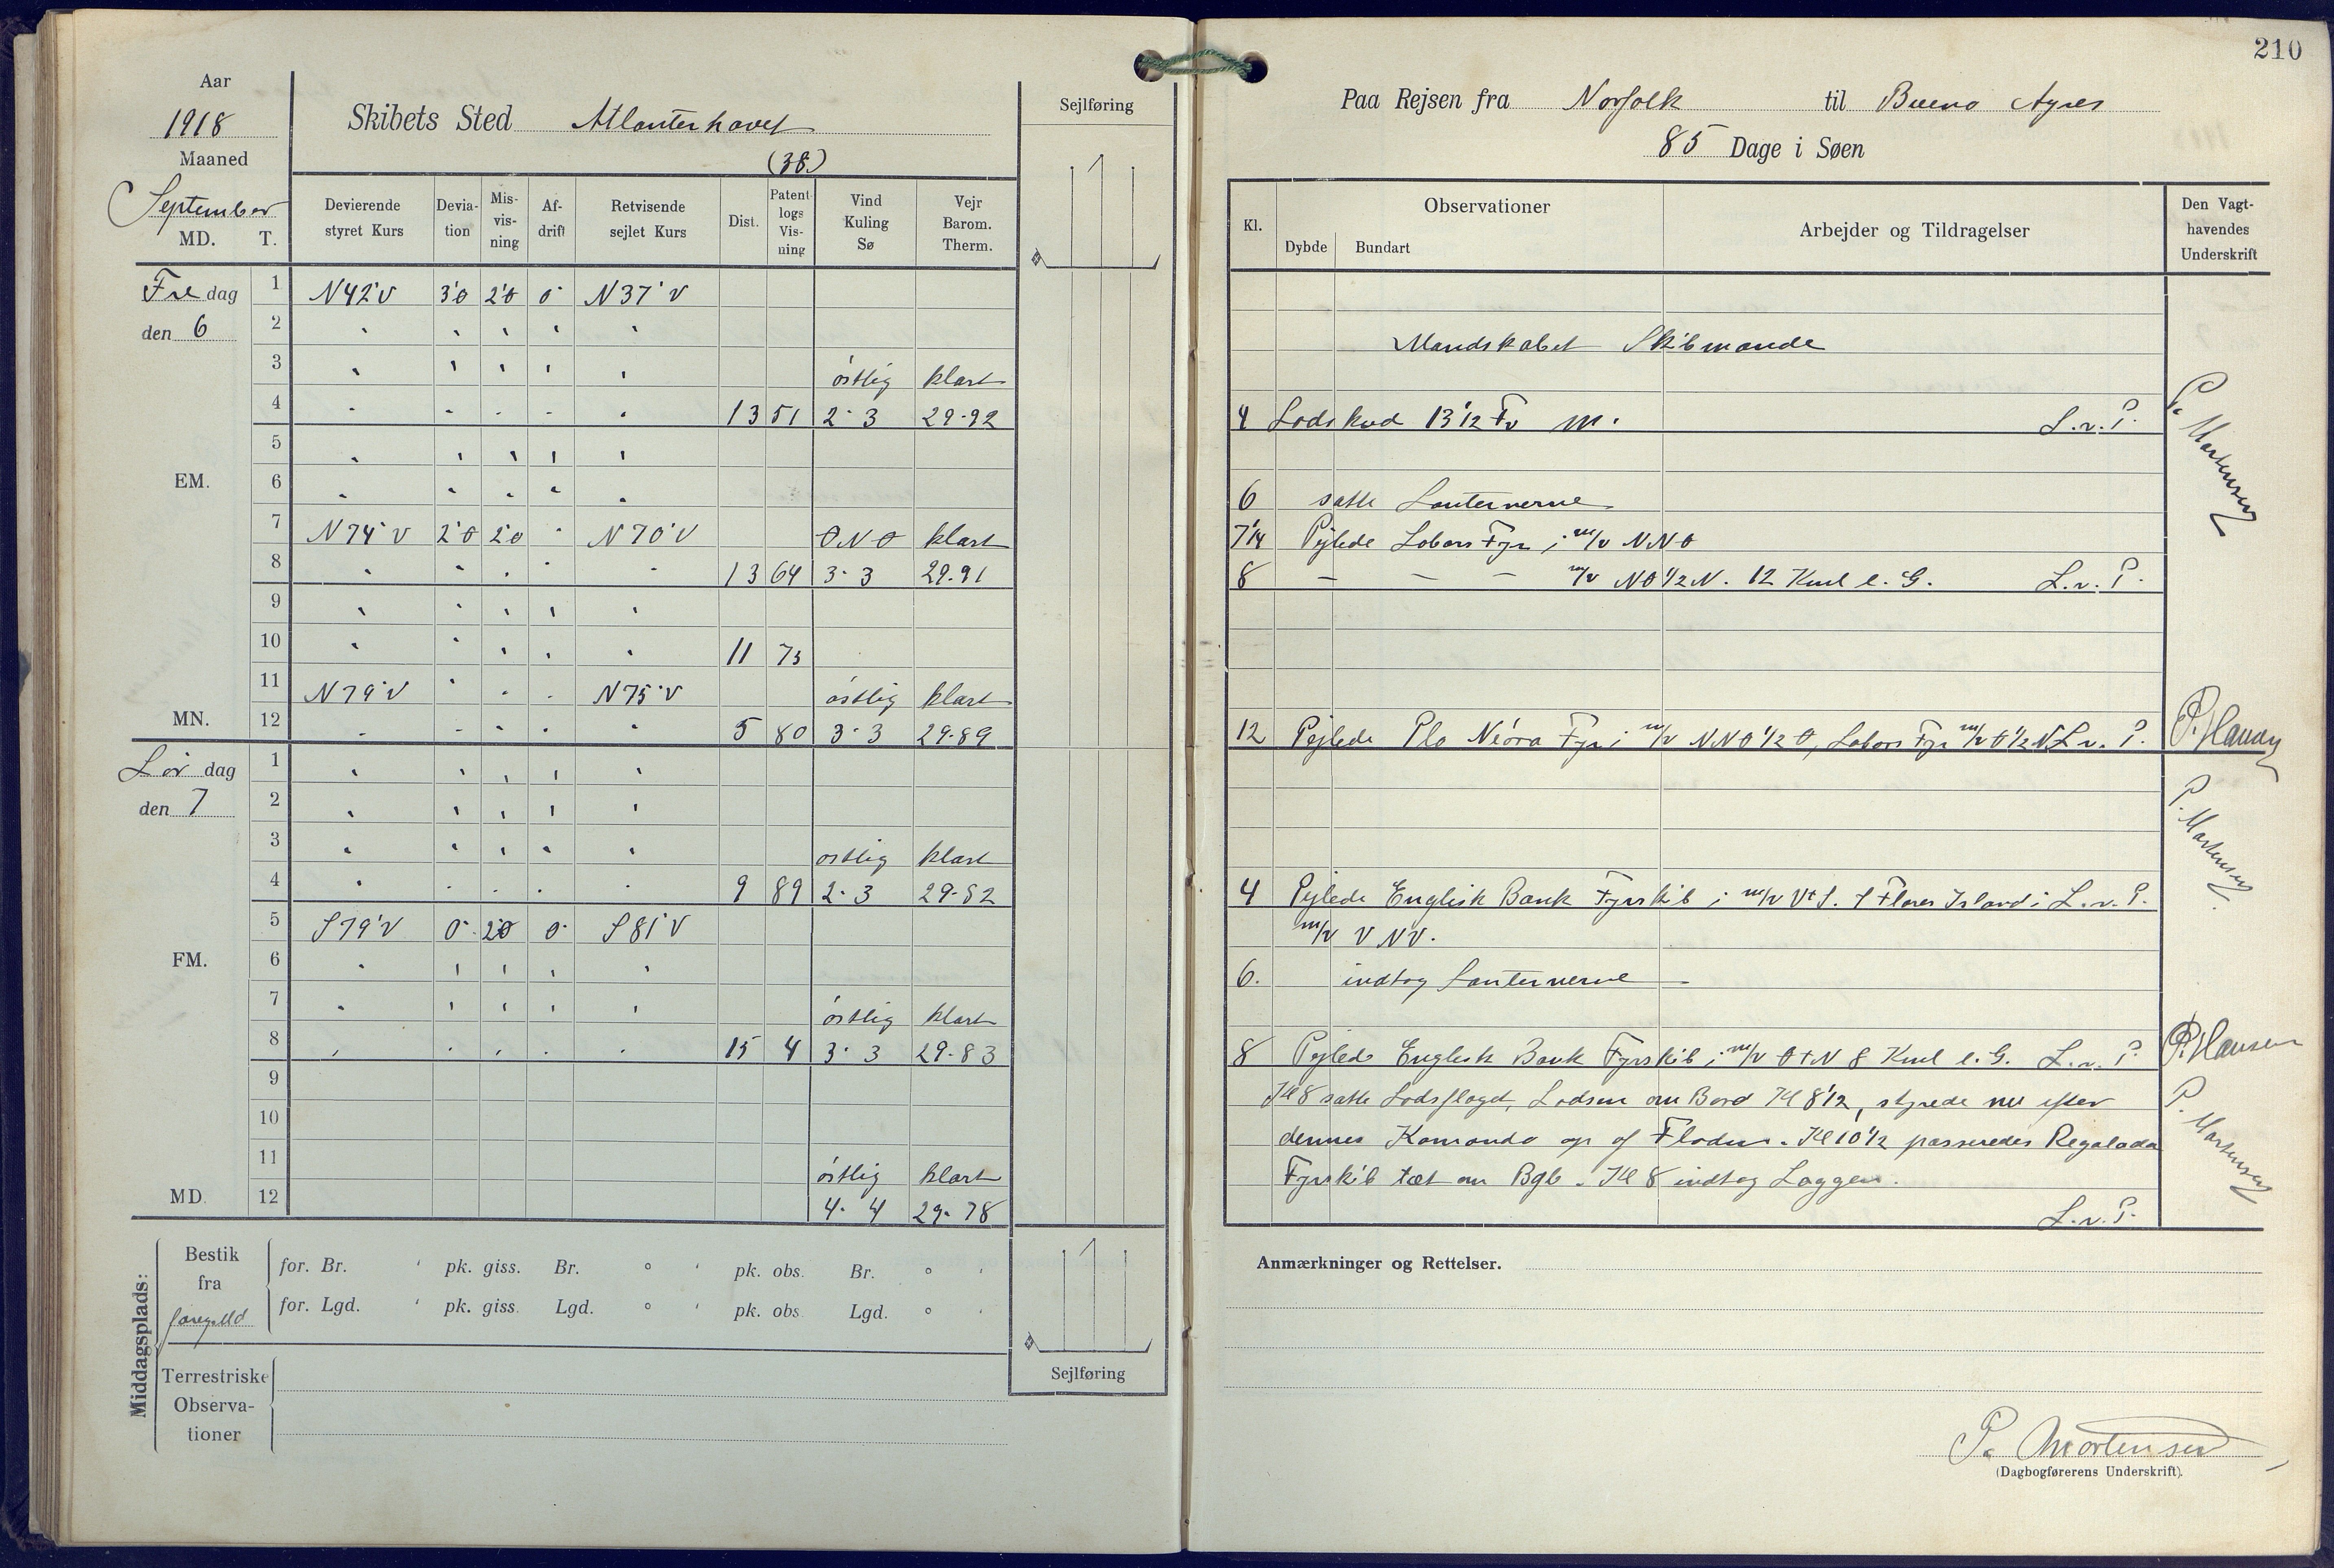 Aar
1918
Maaned
September
MD. T.
Skibets Sted Atlanterhavet
(38)
Sejlføring
Devierende styret Kurs | Devia-tion | Mis-vis-ning | Af-drift | Retvisende sejlet Kurs | Dist. | Patent logs Vis-ning | Vind Kuling Sø | Vejr Barom. Therm.
Fre dag 1 N42°V 3°Ø 2°Ø 0° N37°V
den 6 2 " " " " "
3 " " " " " östlig klart
4 " " " " " 13 51 2-3 29-92
5 " " " " "
EM. 6 " " " " "
7 N74°V 2°Ø 2°Ø " N70°V ØNØ klart
8 " " " " " 13 64 3-3 29.91
9 " " " " "
10 " " " " " 11 75
11 N79°V " " " N75°V östlig klart
MN. 12 " " " " " 5 80 3-3 29-89
Lör dag 1 " " " " "
den 7 2 " " " " "
3 " " " " " östlig klart
4 " " " " " 9 89 2-3 29-82
5 S79°V 0° 2Ø 0° S81°V
FM. 6 " " " " "
7 " " " " " östlig klart
8 " " " " " 15 4 3-3 29-83
9
10
11 östlig klart
MD. 12 4-4 29-78
Middagsplads:
Bestik fra
for. Br. ' pk. giss. Br. ° ' pk. obs. Br. ° '
for. Lgd. ' pk. giss. Lgd. ° ' pk. obs. Lgd. ° '
Sejlføring
Terrestriske
Observa-
tioner
210
Paa Rejsen fra Norfolk til Bueno Ayres
85 Dage i Søen
Kl. | Observationer | Dybde | Bundart | Arbejder og Tildragelser | Den Vagt-havendes Underskrift
Mandskabet Skibmande
4 Lodskud 13 1/2 Fv M. L.v.P.
P. Mortensen
6 satte Lanternerne
7 1/4 Pejlede Lobos Fyr i m/v NNØ
8 — — — m/v NØ 1/2 N. 12 Kml e. G. L.v.P.
12 Pejlede Fyr i m/v NNØ 1/2 Ø, Lobos Fyr m/v Ø 1/2 N L.v.P. P. Hansen
P. Mortensen
4 Pejlede Englisk Bank Fyrskib i m/v VtS. & Flores Island i L.v.P.
m/v VNV.
6. indtog Lanternerne —
8 Pejlede Englisk Bank Fyrskib i m/v ØtN 8 Kml e. G. L.v.P. P. Hansen
Kl 8 satte Lodsflaget, Lodsen om Bord Kl 8 1/2, styrede nu efter
dennes Komando op af Floden. Kl 10 1/2 passeredes Regalada
Fyrskib tæt om Bgb. Kl 8 indtog Loggen.
L.v.P.
P. Mortensen
Anmærkninger og Rettelser.
P. Mortensen
(Dagbogførerens Underskrift).